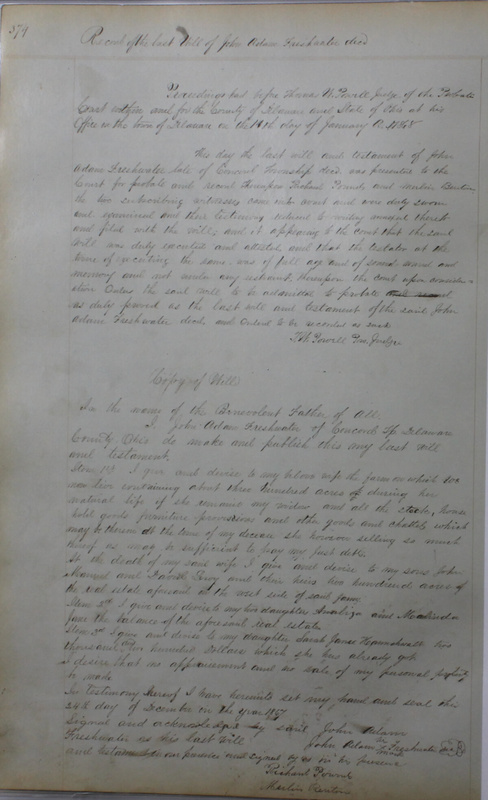 379
Record of the last Will of John Adam Freshwater decd
Proceedings had before Thomas W. Powell Judge of the Probate
Court within and for the County of Delaware and State of Ohio at his
Office in the town of Delaware on the 18th day of January A.D. 1858
This day the last will and testament of John
Adam Freshwater late of Concord Township decd was presented to the
Court for probate and record thereupon Richard Pounds and
the two subscribing witnesses came into court and were duly sworn
and examined and their testimony reduced to writing annexed thereto
and filed with the will, and it appearing to the court that the said
Will was duly executed and attested and that the testator at the
time of executing the same was of full age and of sound mind and
memory and not under any restraint, thereupon the court upon considera-
tion Orders the said will to be admitted to probate and record
as duly proved as the last will and testament of the said John
Adam Freshwater decd, and ordered to be recorded as such
T.W. Powell Pro. Judge
Copy of Will
In the name of the Benevolent Father of All.
I John Adam Freshwater of Concord Tp Delaware
County Ohio do make and publish this my last will
and testament.
Item 1st I give and devise to my beloved wife the farm on which we
now live containing about three hundred acres during her
natural life if she remains my widow and all the stock, house
hold goods furniture provisions and other goods and chattels which
may be thereon at the time of my decease she however selling so much
thereof as may be sufficient to pay my just debts.
At the death of my said wife I give and devise to my sons John
and David and their heirs two hundred acres of
the real estate aforesaid on the west side of said farm
Item 2nd I give and devise to my two daughters and
Jane the balance of the aforesaid real estate
Item 3rd I give and devise to my daughter Sarah Jane two
thousand hundred Dollars which she has already got
I desire that no appraisement and no sale of my personal property
be made
In testimony hereof I have hereunto set my hand and seal this
24th day of December in the year 1857
Signed and acknowledged by said John Adam
Freshwater as his last will John Adam Freshwater
and in our presence and signed by us in his presence
Richard Pounds